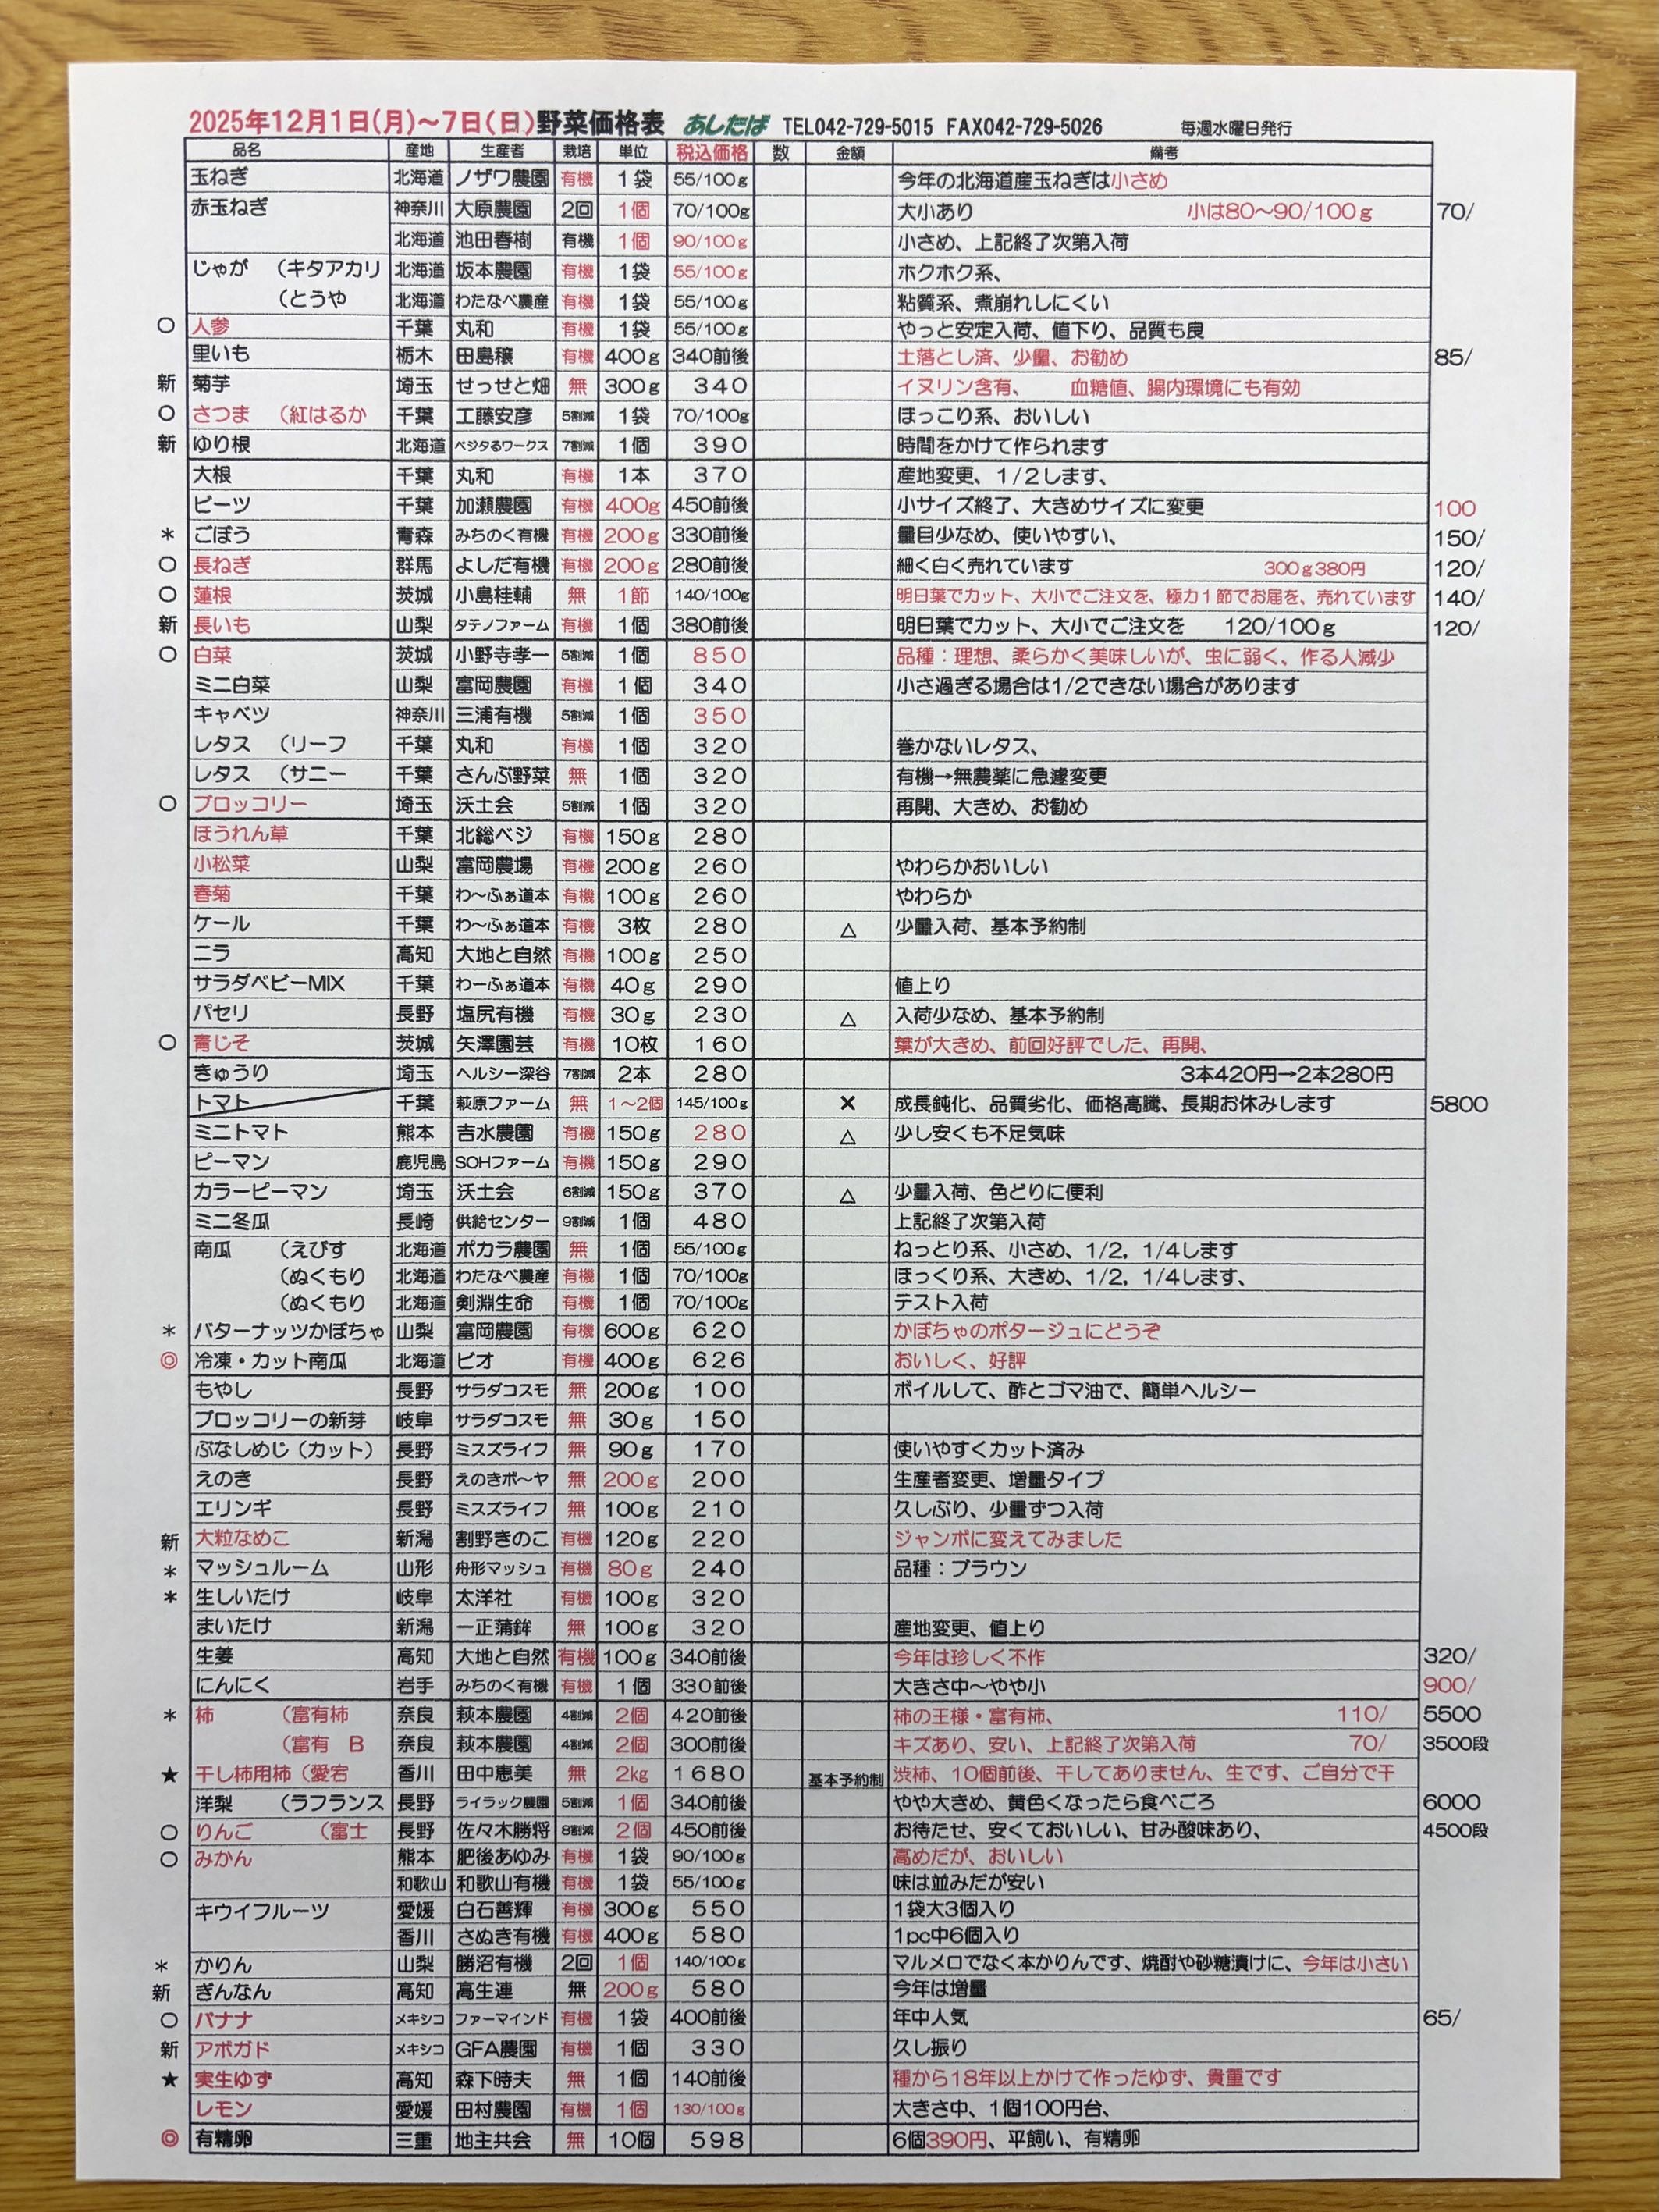 2025年12月1日(月)～7日(日)野菜価格表 あしたば TEL042-729-5015 FAX042-729-5026 毎週水曜日発行
品名 産地 生産者 栽培 単位 税込価格 数 金額 備考
玉ねぎ 北海道 ノザワ農園 有機 1袋 55/100g 今年の北海道産玉ねぎは小さめ
赤玉ねぎ 神奈川 大原農園 2回 1個 70/100g 大小あり 小は80～90/100g 70/
北海道 池田春樹 有機 1個 90/100g 小さめ、上記終了次第入荷
じゃが (キタアカリ 北海道 坂本農園 有機 1袋 55/100g ホクホク系、
(とうや 北海道 わたなべ農産 有機 1袋 55/100g 粘質系、煮崩れしにくい
○ 人参 千葉 丸和 有機 1袋 55/100g やっと安定入荷、値下り、品質も良
里いも 栃木 田島穣 有機 400g 340前後 土落とし済、少量、お勧め 85/
新 菊芋 埼玉 せっせと畑 無 300g 340 イヌリン含有、 血糖値、腸内環境にも有効
○ さつま (紅はるか 千葉 工藤安彦 5割減 1袋 70/100g ほっこり系、おいしい
新 ゆり根 北海道 ベジタるワークス 7割減 1個 390 時間をかけて作られます
大根 千葉 丸和 有機 1本 370 産地変更、1/2します、
ビーツ 千葉 加瀬農園 有機 400g 450前後 小サイズ終了、大きめサイズに変更 100
* ごぼう 青森 みちのく有機 有機 200g 330前後 量目少なめ、使いやすい、 150/
○ 長ねぎ 群馬 よしだ有機 有機 200g 280前後 細く白く売れています 300g380円 120/
○ 蓮根 茨城 小島桂輔 無 1節 140/100g 明日葉でカット、大小でご注文を、極力1節でお届を、売れています 140/
新 長いも 山梨 タテノファーム 有機 1個 380前後 明日葉でカット、大小でご注文を 120/100g 120/
○ 白菜 茨城 小野寺孝一 5割減 1個 850 品種：理想、柔らかく美味しいが、虫に弱く、作る人減少
ミニ白菜 山梨 富岡農園 有機 1個 340 小さ過ぎる場合は1/2できない場合があります
キャベツ 神奈川 三浦有機 5割減 1個 350
レタス (リーフ 千葉 丸和 有機 1個 320 巻かないレタス、
レタス (サニー 千葉 さんぶ野菜 無 1個 320 有機→無農薬に急遽変更
○ ブロッコリー 埼玉 沃土会 5割減 1個 320 再開、大きめ、お勧め
ほうれん草 千葉 北総ベジ 有機 150g 280
小松菜 山梨 富岡農場 有機 200g 260 やわらかおいしい
春菊 千葉 わ～ふぁ道本 有機 100g 260 やわらか
ケール 千葉 わ～ふぁ道本 有機 3枚 280 △ 少量入荷、基本予約制
ニラ 高知 大地と自然 有機 100g 250
サラダベビーMIX 千葉 わーふぁ道本 有機 40g 290 値上り
パセリ 長野 塩尻有機 有機 30g 230 △ 入荷少なめ、基本予約制
○ 青じそ 茨城 矢澤園芸 有機 10枚 160 葉が大きめ、前回好評でした、再開、
きゅうり 埼玉 ヘルシー深谷 7割減 2本 280 3本420円→2本280円
トマト 千葉 萩原ファーム 無 1～2個 145/100g × 成長鈍化、品質劣化、価格高騰、長期お休みします 5800
ミニトマト 熊本 吉水農園 有機 150g 280 △ 少し安くも不足気味
ピーマン 鹿児島 SOHファーム 有機 150g 290
カラーピーマン 埼玉 沃土会 6割減 150g 370 △ 少量入荷、色どりに便利
ミニ冬瓜 長崎 供給センター 9割減 1個 480 上記終了次第入荷
南瓜 (えびす 北海道 ポカラ農園 無 1個 55/100g ねっとり系、小さめ、1/2，1/4します
(ぬくもり 北海道 わたなべ農産 有機 1個 70/100g ほっくり系、大きめ、1/2，1/4します、
(ぬくもり 北海道 剣淵生命 有機 1個 70/100g テスト入荷
* バターナッツかぼちゃ 山梨 富岡農園 有機 600g 620 かぼちゃのポタージュにどうぞ
◎ 冷凍・カット南瓜 北海道 ビオ 有機 400g 626 おいしく、好評
もやし 長野 サラダコスモ 無 200g 100 ボイルして、酢とゴマ油で、簡単ヘルシー
ブロッコリーの新芽 岐阜 サラダコスモ 無 30g 150
ぶなしめじ(カット) 長野 ミスズライフ 無 90g 170 使いやすくカット済み
えのき 長野 えのきボ～ヤ 無 200g 200 生産者変更、増量タイプ
エリンギ 長野 ミスズライフ 無 100g 210 久しぶり、少量ずつ入荷
新 大粒なめこ 新潟 割野きのこ 有機 120g 220 ジャンボに変えてみました
* マッシュルーム 山形 舟形マッシュ 有機 80g 240 品種：ブラウン
* 生しいたけ 岐阜 太洋社 有機 100g 320
まいたけ 新潟 一正蒲鉾 無 100g 320 産地変更、値上り
生姜 高知 大地と自然 有機 100g 340前後 今年は珍しく不作 320/
にんにく 岩手 みちのく有機 有機 1個 330前後 大きさ中～やや小 900/
* 柿 (富有柿 奈良 萩本農園 4割減 2個 420前後 柿の王様・富有柿、 110/ 5500
(富有 B 奈良 萩本農園 4割減 2個 300前後 キズあり、安い、上記終了次第入荷 70/ 3500段
★ 干し柿用柿(愛宕 香川 田中恵美 無 2kg 1680 基本予約制 渋柿、10個前後、干してありません、生です、ご自分で干
洋梨 (ラフランス 長野 ライラック農園 5割減 1個 340前後 やや大きめ、黄色くなったら食べごろ 6000
○ りんご (富士 長野 佐々木勝将 8割減 2個 450前後 お待たせ、安くておいしい、甘み酸味あり、 4500段
○ みかん 熊本 肥後あゆみ 有機 1袋 90/100g 高めだが、おいしい
和歌山 和歌山有機 有機 1袋 55/100g 味は並みだが安い
キウイフルーツ 愛媛 白石善輝 有機 300g 550 1袋大3個入り
香川 さぬき有機 有機 400g 580 1pc中6個入り
* かりん 山梨 勝沼有機 2回 1個 140/100g マルメロでなく本かりんです、焼酎や砂糖漬けに、今年は小さい
新 ぎんなん 高知 高生連 無 200g 580 今年は増量
○ バナナ メキシコ ファーマインド 有機 1袋 400前後 年中人気 65/
新 アボガド メキシコ GFA農園 有機 1個 330 久し振り
★ 実生ゆず 高知 森下時夫 無 1個 140前後 種から18年以上かけて作ったゆず、貴重です
レモン 愛媛 田村農園 有機 1個 130/100g 大きさ中、1個100円台、
◎ 有精卵 三重 地主共会 無 10個 598 6個390円、平飼い、有精卵